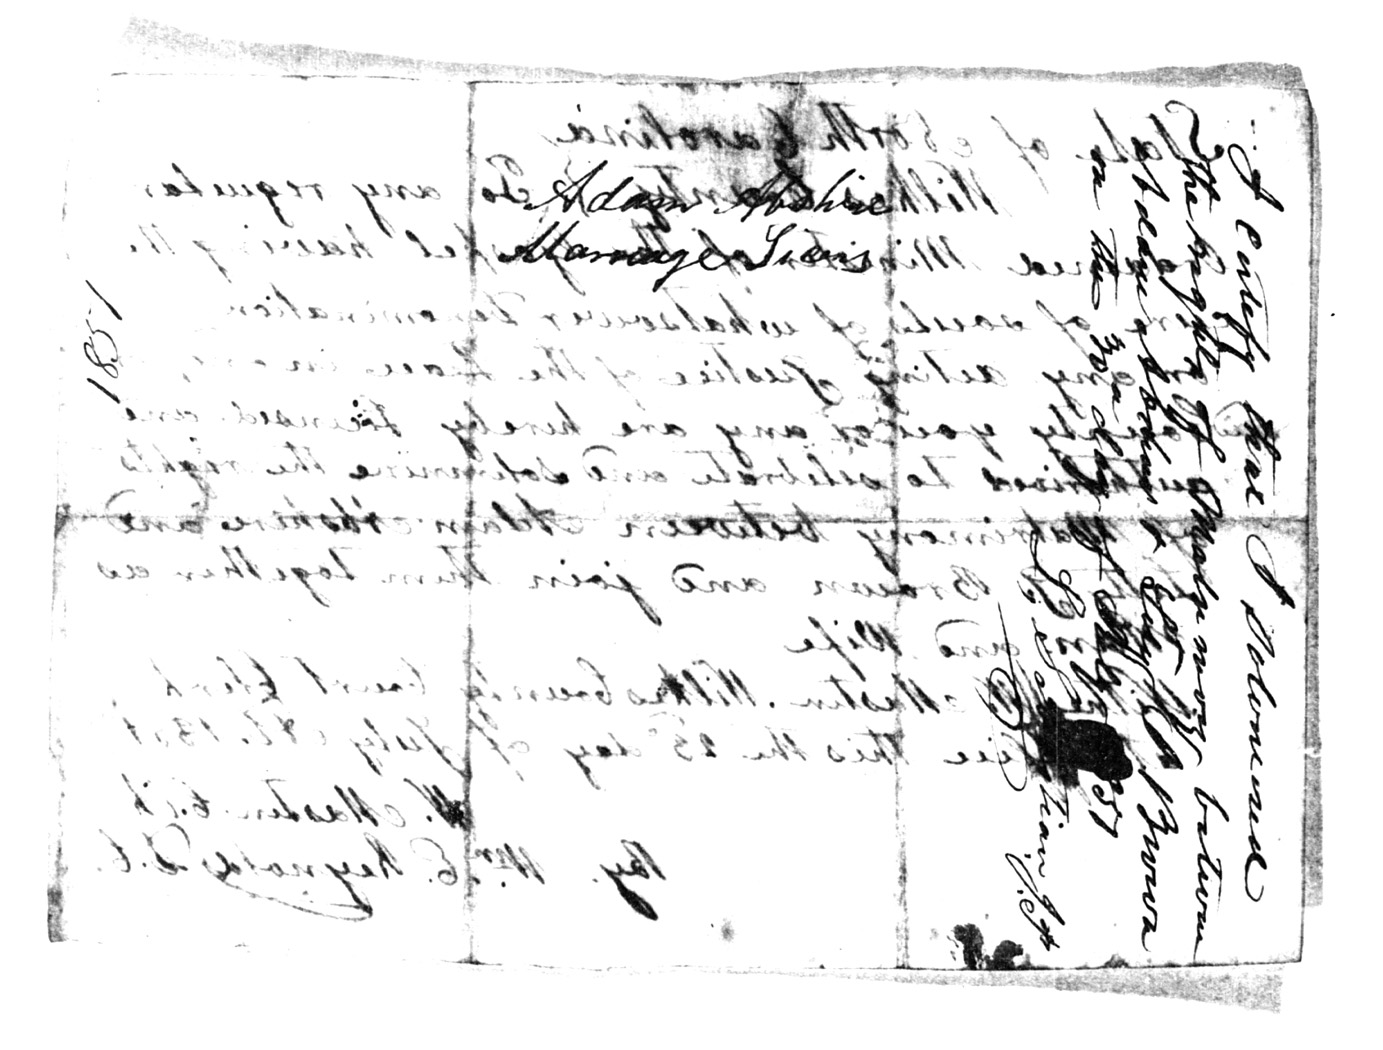 Adam Abshire
Marriage Licins
1851
I certify that I Solomnised
the rights of Matrimony between
Adam Abshire & Brown
on the 30 day of July 1851
J. P.
State of North Carolina
Wilkes County To any regular
Minister of the Gospel having the
of souls of whatsoever Denomination
or any acting Justice of the Peace in
County you or any are hereby Licensed and
authorised to celebrate and solemnize the rights
of Matrimony between Adam Abshire and
Brown and join them together as
and Wife
Mastin. Wilkes County Court Clerk
this the 25 day of July A.D. 1851
W. Mastin C.C.C.
By. Wm. E. Reynolds D.C.